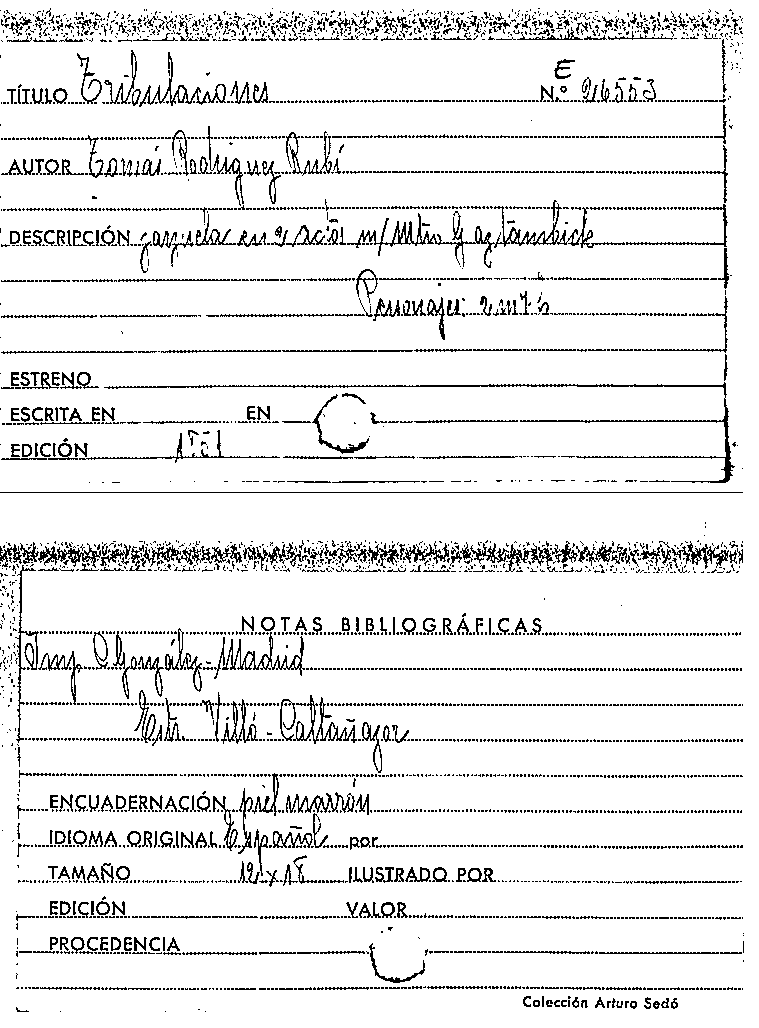 E
TÍTULO Tribulaciones N.º 26553
AUTOR Tomás Rodriguez Rubí
DESCRIPCIÓN zarzuela en 2 actos m/ Mtro Gaztambide
Personajes: 2 m 7 h
ESTRENO
ESCRITA EN EN
EDICIÓN 1851
NOTAS BIBLIOGRÁFICAS
Imp. C González - Madrid
Estr. Villó - Caltañazor
ENCUADERNACIÓN piel marrón
IDIOMA ORIGINAL Español por
TAMAÑO 12 x 18 ILUSTRADO POR
EDICIÓN VALOR
PROCEDENCIA
Colección Arturo Sedó